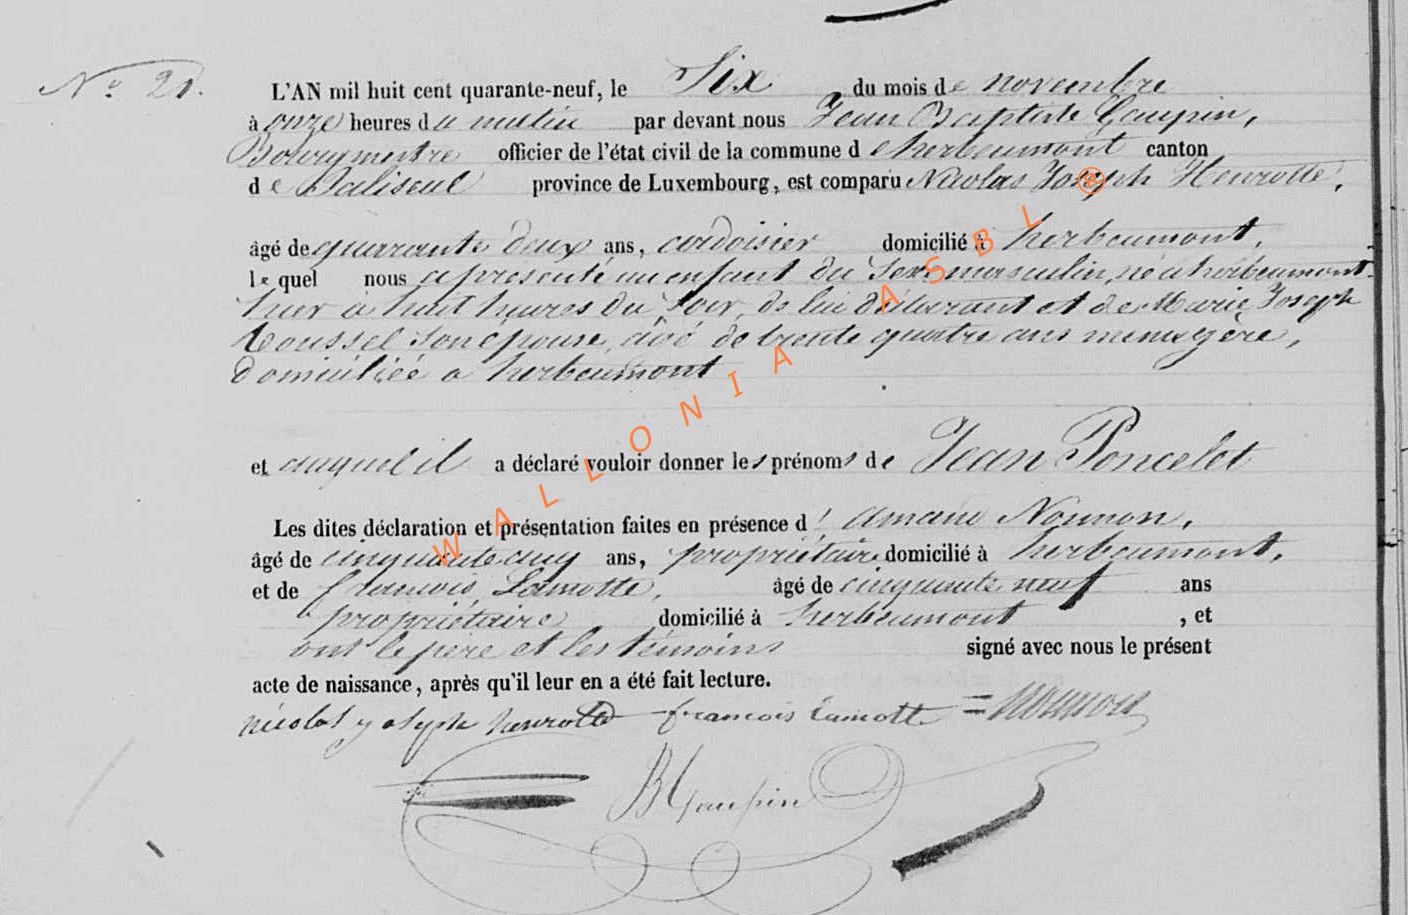 N° 21.
L'AN mil huit cent quarante-neuf, le Six du mois de novembre
à onze heures du matin par devant nous Jean Baptiste Gaupin,
Bourgmestre officier de l'état civil de la commune d'herbeumont canton
de Paliseul province de Luxembourg, est comparu Nicolas Joseph Henrotte,
âgé de quarante deux ans, ardoisier domicilié à herbeumont,
lequel nous a presenté un enfant du Sexe masculin, né à herbeumont
hier à huit heures du soir, de lui déclarant et de Marie Joseph
Roussel son épouse, âgé de trente quatre ans menagère,
domiciliée à herbeumont
et auquel il a déclaré vouloir donner les prénoms de Jean Poncelet
Les dites déclaration et présentation faites en présence d' Amand Noumon,
âgé de cinquante cinq ans, propriétaire domicilié à herbeumont,
et de françois Lamotte, âgé de cinquante neuf ans
propriétaire domicilié à herbeumont , et
ont le père et les témoins signé avec nous le présent
acte de naissance, après qu'il leur en a été fait lecture.
nicolas yoseph henrotte françois Lamotte Noumon
B Gaupin
WALLONIA ASBL ®